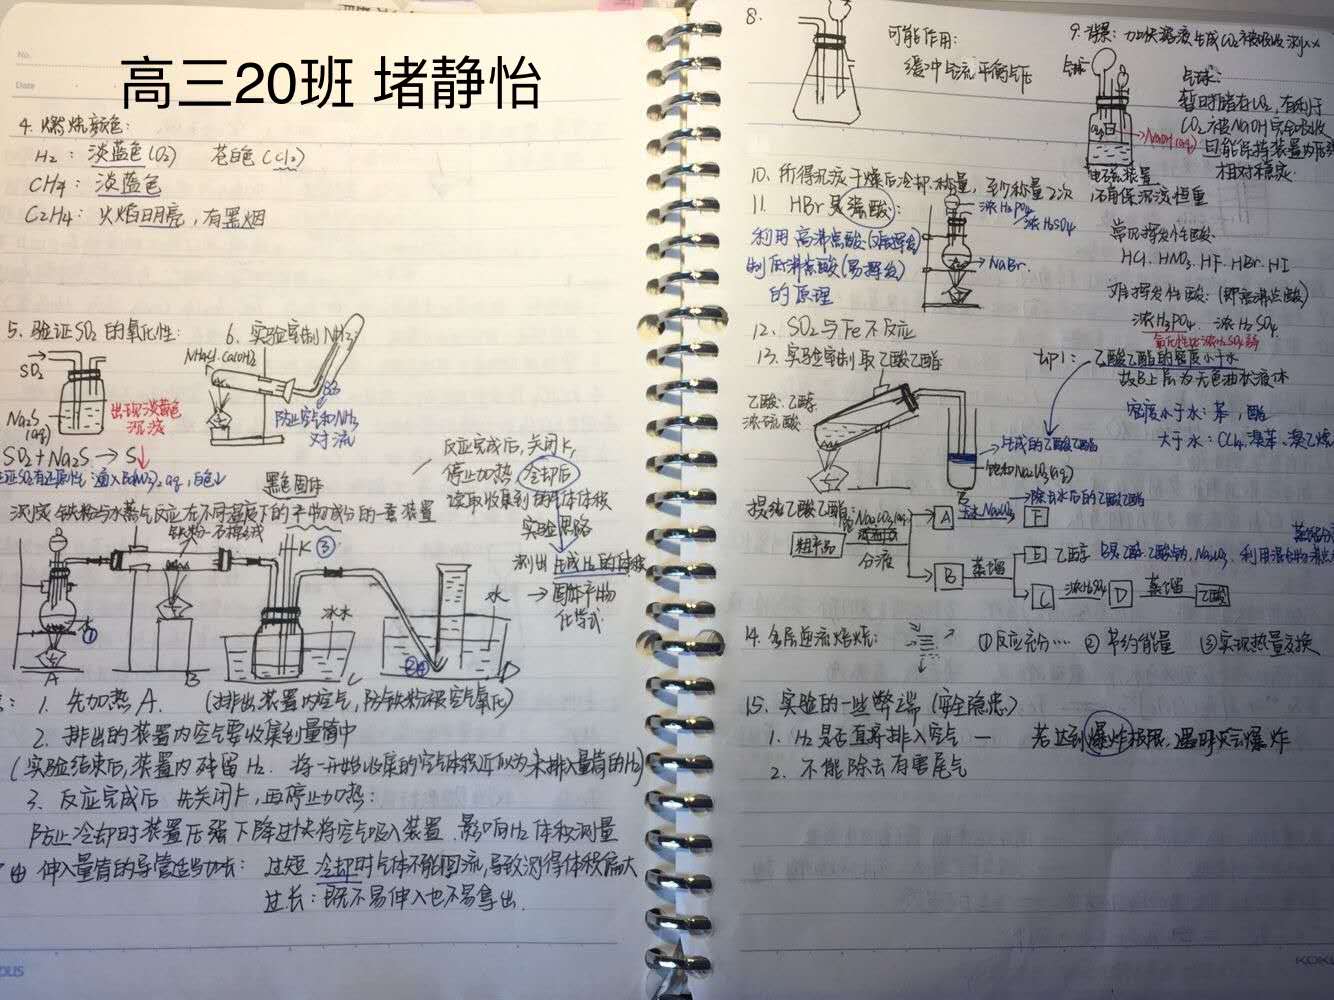 高三20班 堵静怡
No.
Date
4. 燃烧颜色:
H2: 淡蓝色(O2) 苍白色(Cl2)
CH4: 淡蓝色
C2H4: 火焰明亮,有黑烟
5. 验证SO2的氧化性:
SO2
Na2S
(aq)
出现淡黄色
沉淀
SO2+Na2S→S↓
6. 实验室制NH3:
NH4Cl Ca(OH)2
防止空气和NH3
对流
反应完成后,关闭K,
停止加热 冷却后
读取收集到的气体体积
实验思路
测出生成H2的体积
→固体产物
化学式
黑色固体
测定铁粉与水蒸气反应在不同温度下的产物成分的一套装置
铁粉 石棉绒
K ③
水
①
冰水
水
②④
A B C D
1. 先加热A. (排出装置内空气,防铁粉被空气氧化)
2. 排出的装置内空气要收集到量筒中
(实验结束后,装置内残留H2. 将一开始收集的空气体积近似为未排入量筒的H2)
3. 反应完成后 先关闭K,再停止加热:
防止冷却时装置压强下降过快将空气吸入装置.影响H2体积测量
④ 伸入量筒的导管适当加长: 过短 冷却时气体不能回流,导致测得体积偏大
过长: 既不易伸入也不易拿出.
8.
可能作用:
缓冲气流 平衡气压
9. 背景: 加快溶液生成CO2被吸收
气球
NaOH(aq)
气球:
暂时储存CO2,有利于
CO2被NaOH完全吸收
且能保持装置内压强
相对稳定.
10. 所得沉淀干燥后冷却.称量,至少称量2次,确保沉淀恒重
11. HBr是强酸:
利用高沸点酸(难挥发)
制低沸点酸(易挥发)
的原理
浓H3PO4
浓H2SO4
NaBr.
常见挥发性酸:
HCl. HNO3. HF. HBr. HI
难挥发性酸:(即高沸点酸)
浓H3PO4. 浓H2SO4.
12. SO2与Fe不反应
13. 实验室制取乙酸乙酯
乙酸.乙醇
浓硫酸
生成的乙酸乙酯
饱和Na2CO3(aq)
tip1: 乙酸乙酯的密度小于水
故B上层为无色油状液体
密度小于水: 苯,酯
大于水: CCl4.溴苯.溴乙烷
提纯乙酸乙酯:
粗产品
分液
A
F
B
蒸馏
E 乙醇
C 浓H2SO4 D 蒸馏 乙酸
除去水后的乙酸乙酯
14. 多层逆流焙烧: ①反应充分… ②节约能量 ③实现热量交换
15. 实验的一些弊端 (安全隐患)
1. H2是否直接排入空气 — 若达到爆炸极限,遇明火会爆炸
2. 不能除去有害尾气